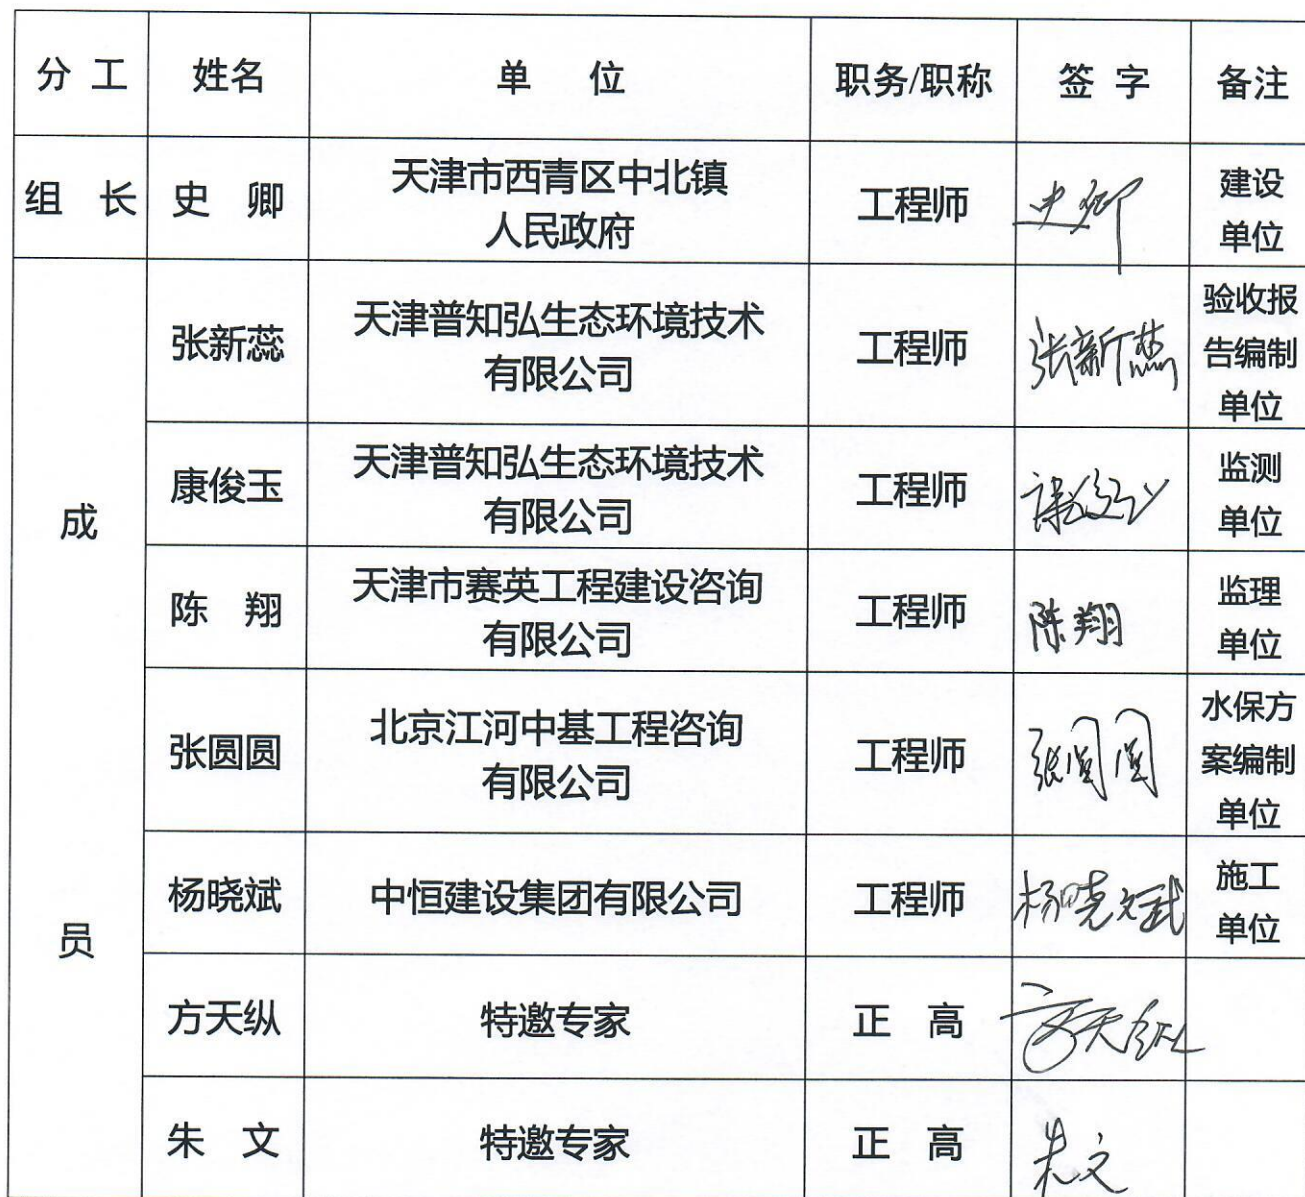 分 工 姓名 单 位 职务/职称 签 字 备注
组 长 史 卿 天津市西青区中北镇 人民政府 工程师 史卿 建设 单位
成 员
张新蕊 天津普知弘生态环境技术 有限公司 工程师 张新蕊 验收报 告编制 单位
康俊玉 天津普知弘生态环境技术 有限公司 工程师 监测 单位
陈 翔 天津市赛英工程建设咨询 有限公司 工程师 陈翔 监理 单位
张圆圆 北京江河中基工程咨询 有限公司 工程师 张圆圆 水保方 案编制 单位
杨晓斌 中恒建设集团有限公司 工程师 杨晓斌 施工 单位
方天纵 特邀专家 正 高 方天纵
朱 文 特邀专家 正 高 朱文